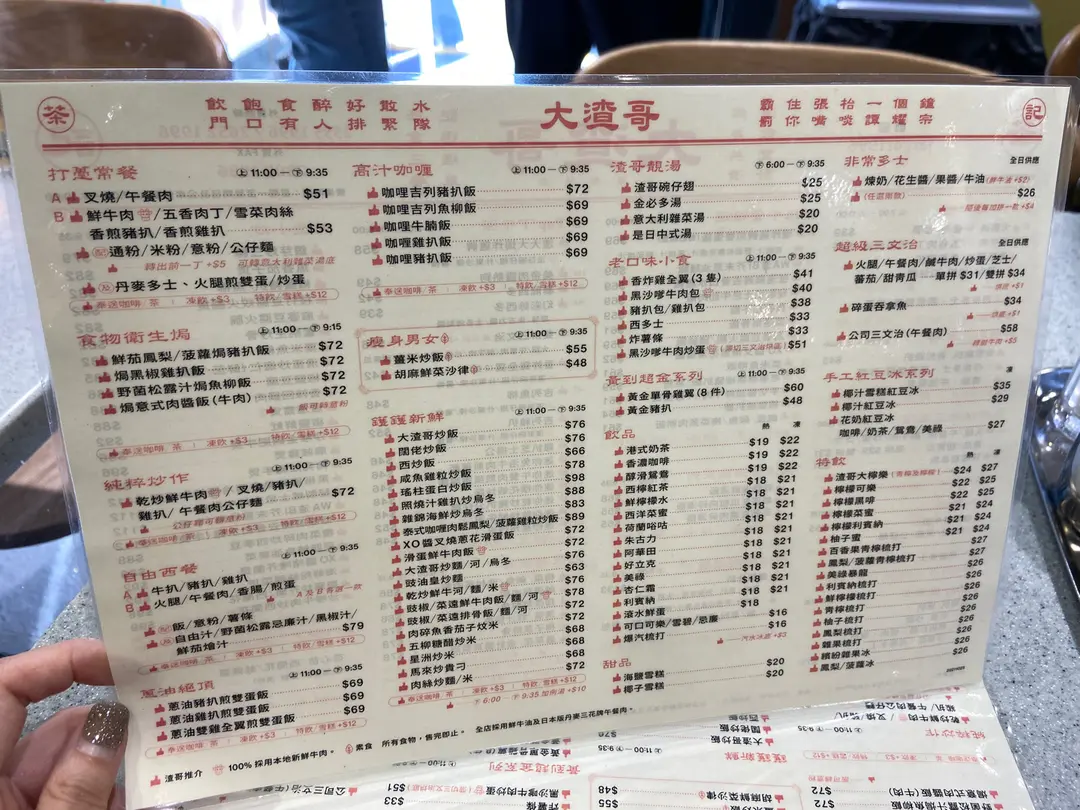 茶
飲飽食醉好散水
門口有人排緊隊
大渣哥
霸住張枱一個鐘
劉你嘴啖譚耀宗
記
打躉常餐 上11:00—下9:35
A 叉燒/午餐肉 $51
B 鮮牛肉/五香肉丁/雪菜肉絲
香煎豬扒/香煎雞扒 $53
配 通粉/米粉/意粉/公仔麵
轉出前一丁+$5 可轉意大利雜菜湯底
及 丹麥多士、火腿煎雙蛋/炒蛋
奉送咖啡 茶 凍飲+$3 特飲/雪糕+$12
食物衛生焗 上11:00—下9:15
鮮茄鳳梨/菠蘿焗豬扒飯 $72
焗黑椒雞扒飯 $72
野菌松露汁焗魚柳飯 $72
焗意式肉醬飯(牛肉) $72
飯可轉意粉
奉送咖啡 茶 凍飲+$3 特飲/雪糕+$12
純粹炒作 上11:00—下9:35
乾炒鮮牛肉/叉燒/豬扒/
雞扒/午餐肉公仔麵 $72
公仔麵可轉意粉
奉送咖啡 茶 凍飲+$3 特飲/雪糕+$12
自由西餐 上11:00—下9:35
A 牛扒/豬扒/雞扒
B 火腿/午餐肉/香腸/煎蛋
A及B各選一款
配 飯/意粉/薯條
自由汁/野菌松露忌廉汁/黑椒汁/
鮮茄燴汁 $79
奉送咖啡 茶 凍飲+$3 特飲/雪糕+$12
蔥油絕頂 上11:00—下9:35
蔥油豬扒煎雙蛋飯 $69
蔥油雞扒煎雙蛋飯 $69
蔥油雙雞全翼煎雙蛋飯 $69
奉送咖啡 茶 凍飲+$3 特飲/雪糕+$12
高汁咖喱 上11:00—下9:35
咖哩吉列豬扒飯 $72
咖哩吉列魚柳飯 $69
咖哩牛腩飯 $69
咖喱雞扒飯 $69
咖哩豬扒飯 $69
奉送咖啡 茶 凍飲+$3 特飲/雪糕+$12
瘦身男女 上11:00—下9:35
薑米炒飯 $55
胡麻鮮菜沙律 $48
鑊鑊新鮮 上11:00—下9:35
大渣哥炒飯 $76
闊佬炒飯 $66
西炒飯 $76
咸魚雞粒炒飯 $78
瑤柱蛋白炒飯 $98
照燒汁雞扒炒烏冬 $88
雜錦海鮮炒烏冬 $83
泰式咖喱肉鬆鳳梨/菠蘿雞粒炒飯 $89
XO醬叉燒蔥花滑蛋飯 $72
滑蛋鮮牛肉飯 $72
大渣哥炒麵/河/烏冬 $76
豉油皇炒麵 $63
乾炒鮮牛河/麵/米 $76
豉椒/菜遠鮮牛肉飯/麵/河 $78
豉椒/菜遠排骨飯/麵/河 $72
肉碎魚香茄子炆米 $68
五柳糖醋炒米 $68
星洲炒米 $68
馬來炒貴刁 $68
肉絲炒麵/米 $72
奉送咖啡 茶 凍飲+$3 特飲/雪糕+$12
下6:00—下9:35 加例湯+$10
渣哥靚湯 下6:00—下9:35
渣哥碗仔翅 $25
金必多湯 $25
意大利雜菜湯 $20
是日中式湯 $20
老口味小食 上11:00—下9:35
香炸雞全翼(3隻) $41
黑沙嗲牛肉包 $40
豬扒包/雞扒包 $38
西多士 $33
炸薯條 $33
黑沙嗲牛肉炒蛋(厚切三文治烘底) $51
黃到超金系列 上11:00—下9:35
黃金單骨雞翼(8件) $60
黃金豬扒 $48
飲品 熱 凍
港式奶茶 $19 $22
香濃咖啡 $19 $22
醇滑鴛鴦 $19 $22
西檸紅茶 $18 $21
鮮檸檬水 $18 $21
西洋菜蜜 $18 $21
荷蘭唂咕 $18 $21
朱古力 $18 $21
阿華田 $18 $21
好立克 $18 $21
美祿 $18 $21
杏仁霜 $18 $21
利賓納 $18 $21
滾水鮮蛋 $18
可口可樂/雪碧/忌廉 $16
爆汽梳打 $16
汽水冰底+$3
甜品
海鹽雪糕 $20
椰子雪糕 $20
非常多士 全日供應
煉奶/花生醬/果醬/牛油(鮮牛油+$2)
(任選兩款) $26
隨後每加拼一款+$4
超級三文治 全日供應
火腿/午餐肉/鹹牛肉/炒蛋/芝士/
蕃茄/甜青瓜 單拼$31/雙拼$34
烘底+$1
碎蛋吞拿魚 $34
烘底+$1
公司三文治(午餐肉) $58
轉鮮牛肉+$5
手工紅豆冰系列 凍
椰汁雪糕紅豆冰 $35
椰汁紅豆冰 $29
花奶紅豆冰
咖啡/奶茶/鴛鴦/美祿 $27
特飲 熱 凍
渣哥大檸樂(青檸及檸檬) $24 $27
檸檬可樂 $22 $25
檸檬黑啡 $22 $25
檸檬菜蜜 $21 $24
檸檬利賓納 $21 $24
柚子蜜 $21 $24
百香果青檸梳打 $27
鳳梨/菠蘿青檸梳打 $27
美祿暴龍 $26
利賓納梳打 $26
鮮檸檬梳打 $26
青檸梳打 $26
柚子梳打 $26
鳳梨梳打 $26
雜果梳打 $26
繽紛雜果冰 $26
鳳梨/菠蘿冰 $26
渣哥推介 100%採用本地新鮮牛肉。 素食 所有食物,售完即止。 全店採用鮮牛油及日本版丹麥三花牌午餐肉。